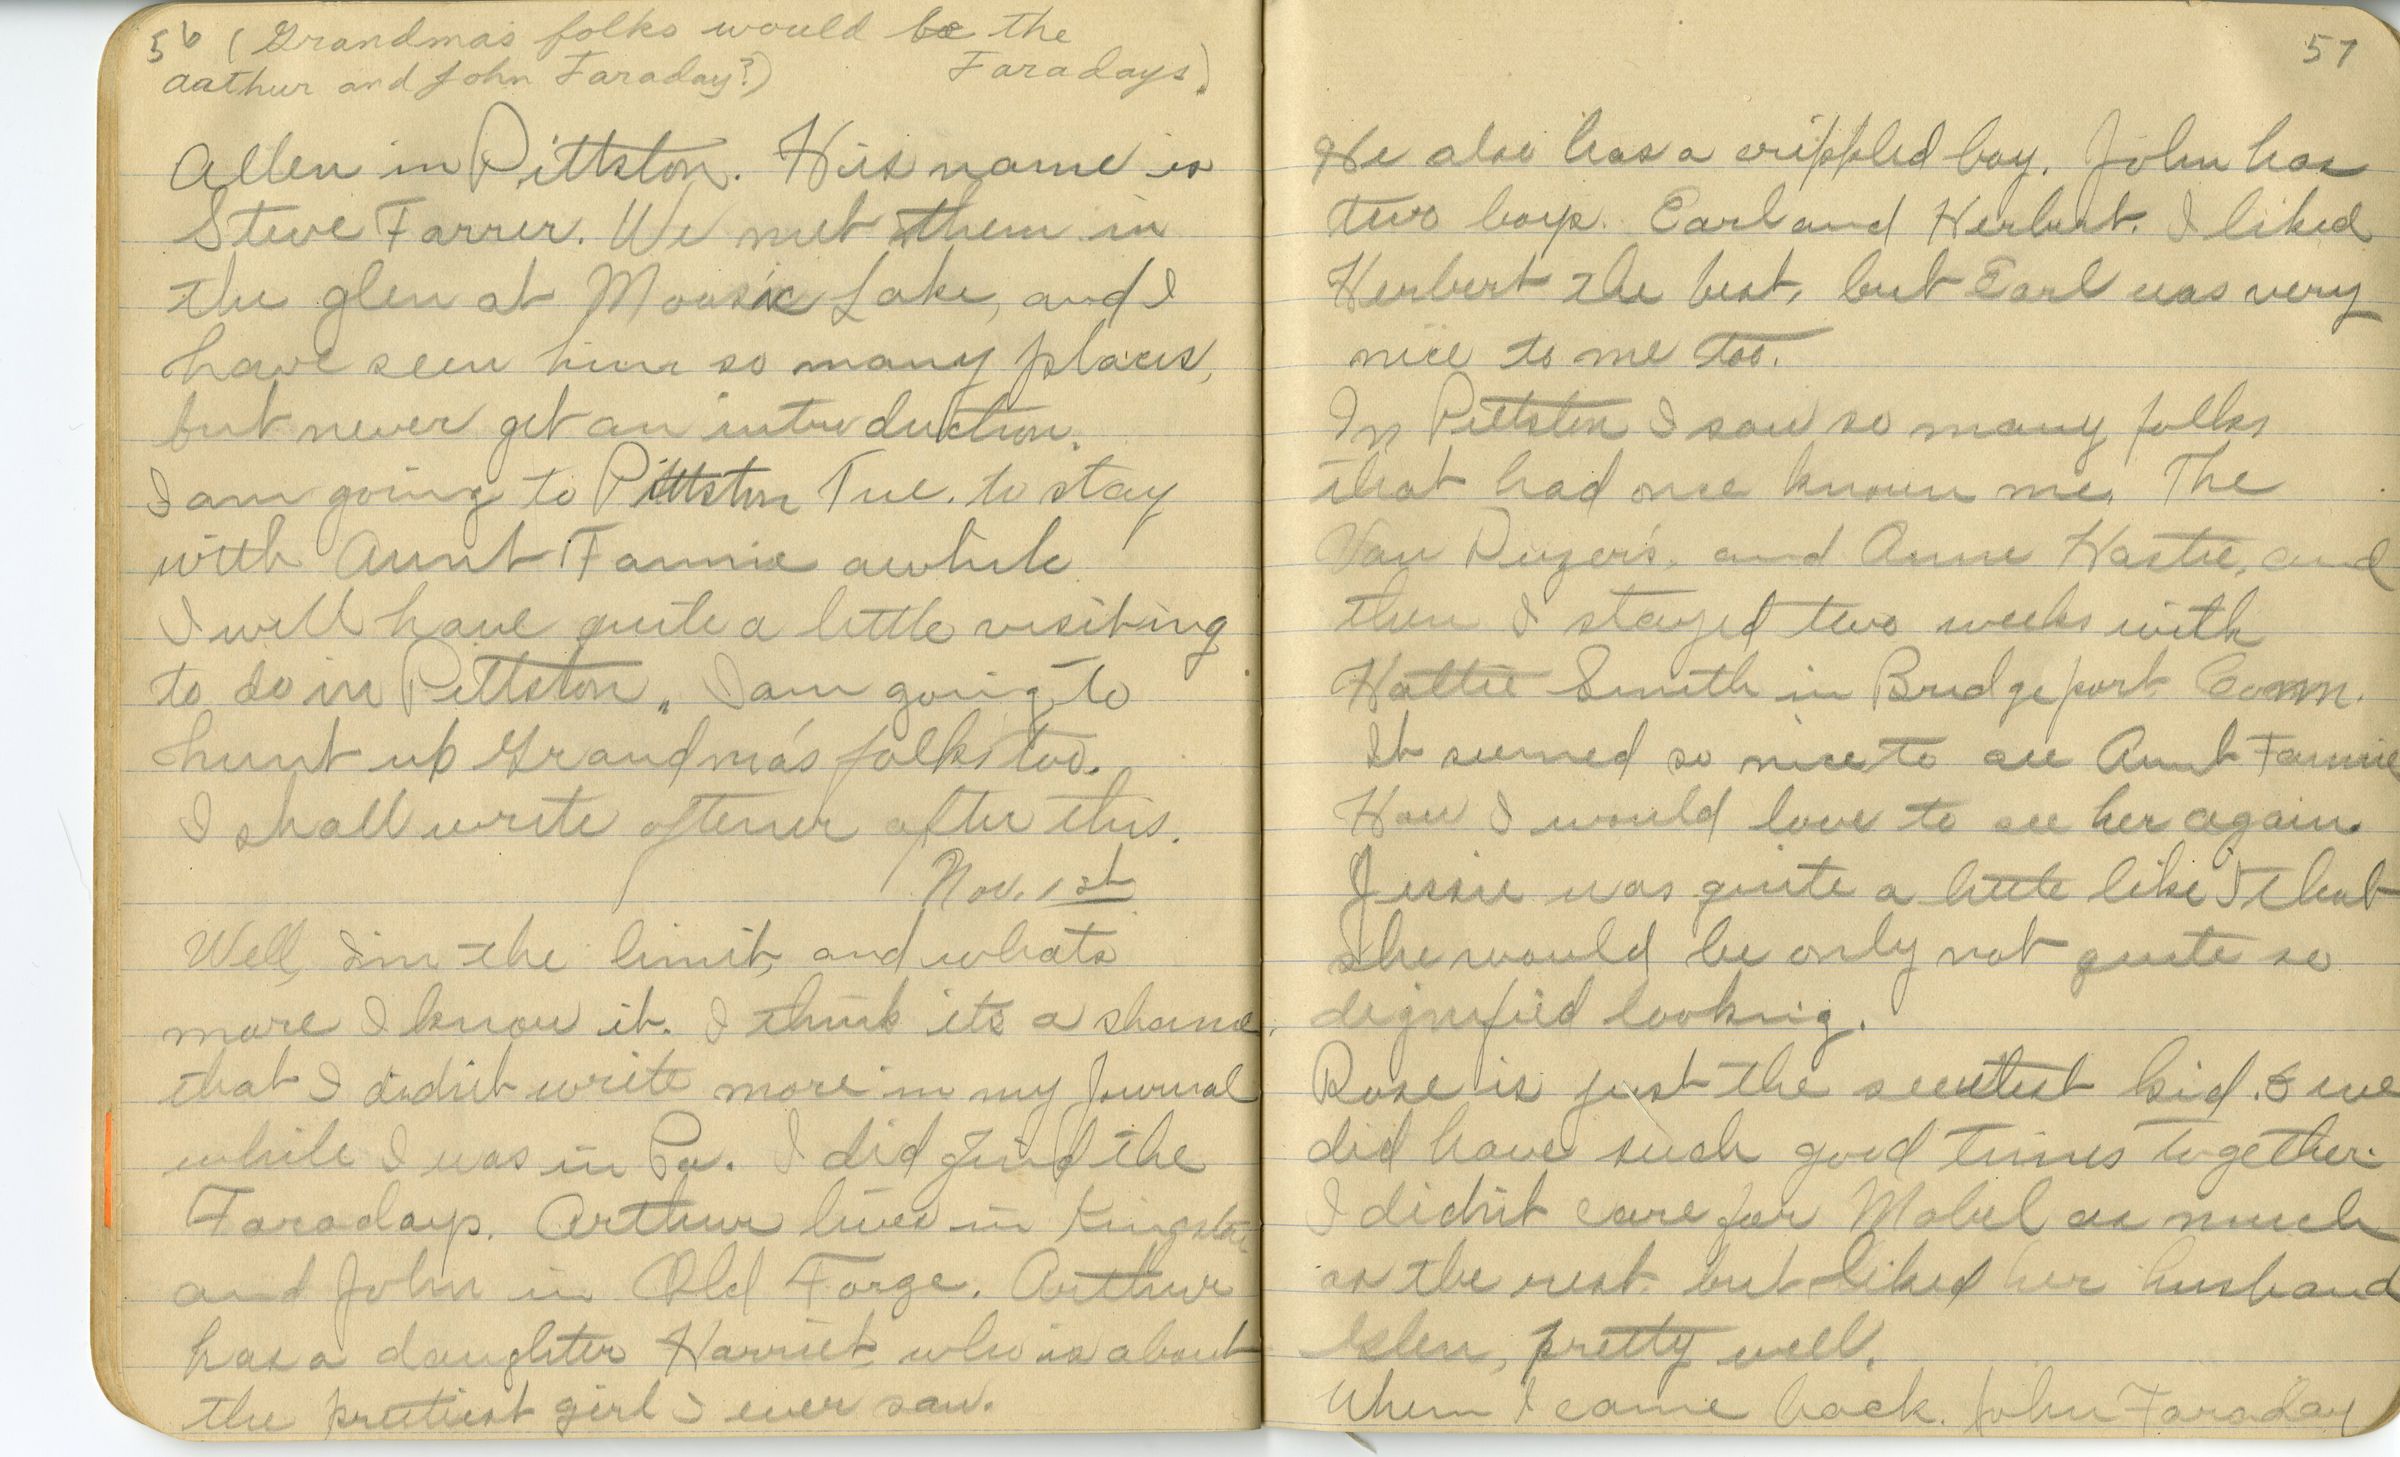 56 (Grandmas folks would be the
Aathur and John Faraday?) Faradays)
Allen in Pittston. His name is
Steve Farrer. We met them in
the glen at Moosic Lake, and I
have seen him so many places,
but never get an introduction.
I am going to Pittston Tue. to stay
with Aunt Fannie awhile
I will have quite a little visiting
to do in Pittston. I am going to
hunt up Grandma's folks too.
I shall write oftener after this.
Nov. 1st
Well, I'm the limit, and whats
more I know it. I think its a shame,
that I didn't write more in my Journal
while I was in Pa. I did find the
Faradays. Arthur lives in Kingston
and John in Old Forge. Arthur
has a daughter Harriet who is about
the prettiest girl I ever saw.
57
He also has a crippled boy. John has
two boys. Earl and Herbert. I liked
Herbert the best, but Earl was very
nice to me too.
In Pittston I saw so many folks
that had once known me. The
Van Duzer's and Anne Hastie, and
then I stayed two weeks with
Hattie Smith in Bridgeport Conn.
It seemed so nice to see Aunt Fannie
How I would love to see her again.
Jessie was quite a little like I that
she would be only not quite so
dignified looking.
Rose is just the sweetest kid. & we
did have such good times together.
I didn't care for Mabel as much
as the rest but liked her husband
Glen, pretty well.
When I came back. John Faraday